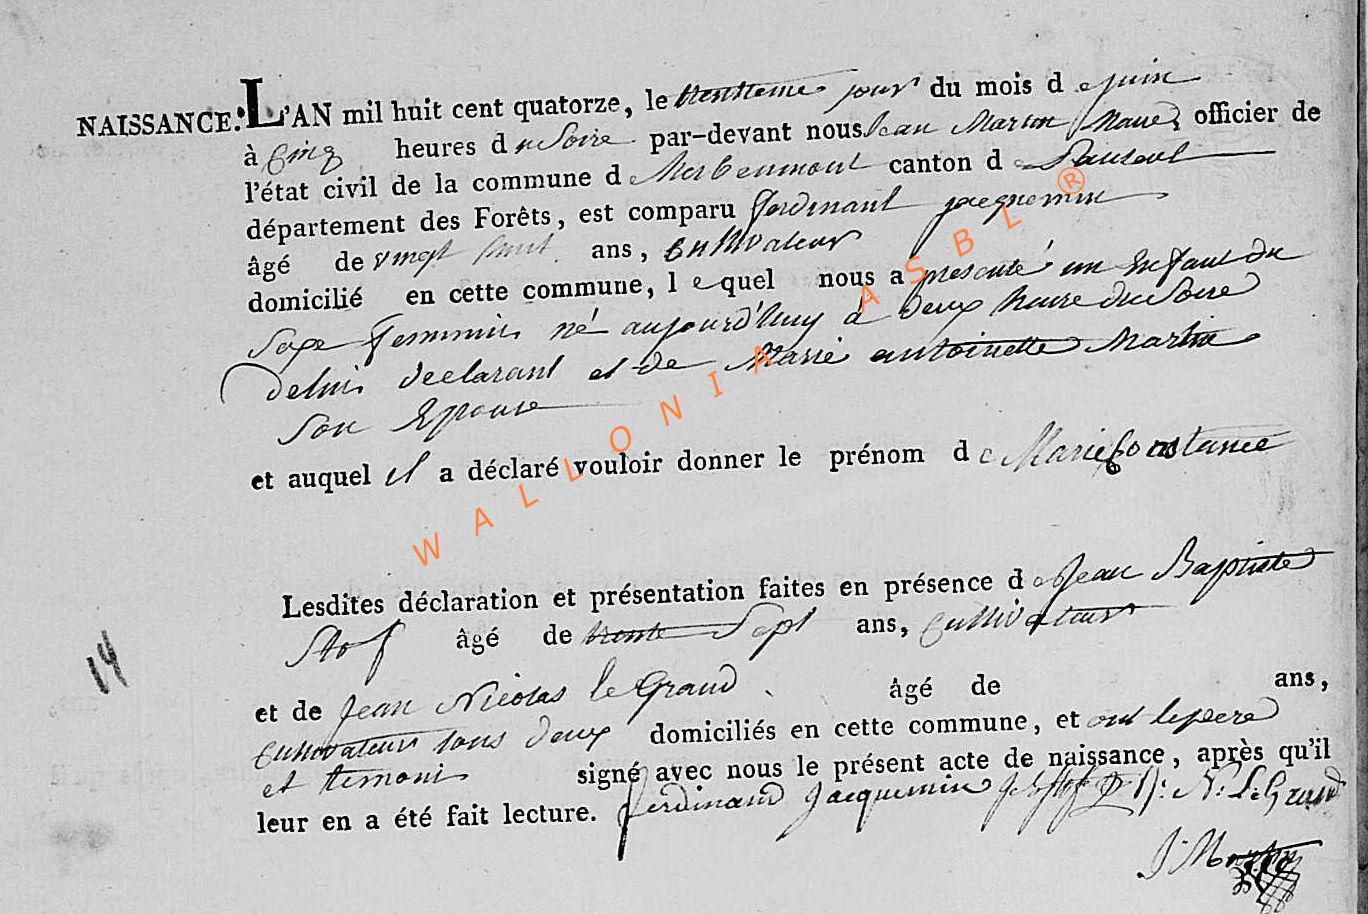 NAISSANCE. L'AN mil huit cent quatorze, le trentieme jour du mois de juin
à Cinq heures du Soire par-devant nous Jean Martin officier de
l'état civil de la commune de Herbeumont canton de
département des Forêts, est comparu ferdinant jacqnemin
âgé de vingt ans, Cultivateur
domicilié en cette commune, lequel nous a presenté un Enfant du
Sexe femmin né aujourd'huy à deux heure du Soire
deluis declarant et de Marie antoinette Martin
Son Epouse
et auquel il a déclaré vouloir donner le prénom de Marie Constance
Lesdites déclaration et présentation faites en présence de Jean Baptiste
Stof âgé de trente Sept ans, Cultivateur
et de Jean Nicolas le Grand âgé de ans,
Cultivateur tous deux domiciliés en cette commune, et ont le pere
et temoin signé avec nous le présent acte de naissance, après qu'il
leur en a été fait lecture. ferdinand Jacquemin J: N: LeGrand
J: M
14
WALLONIA ASBL ®